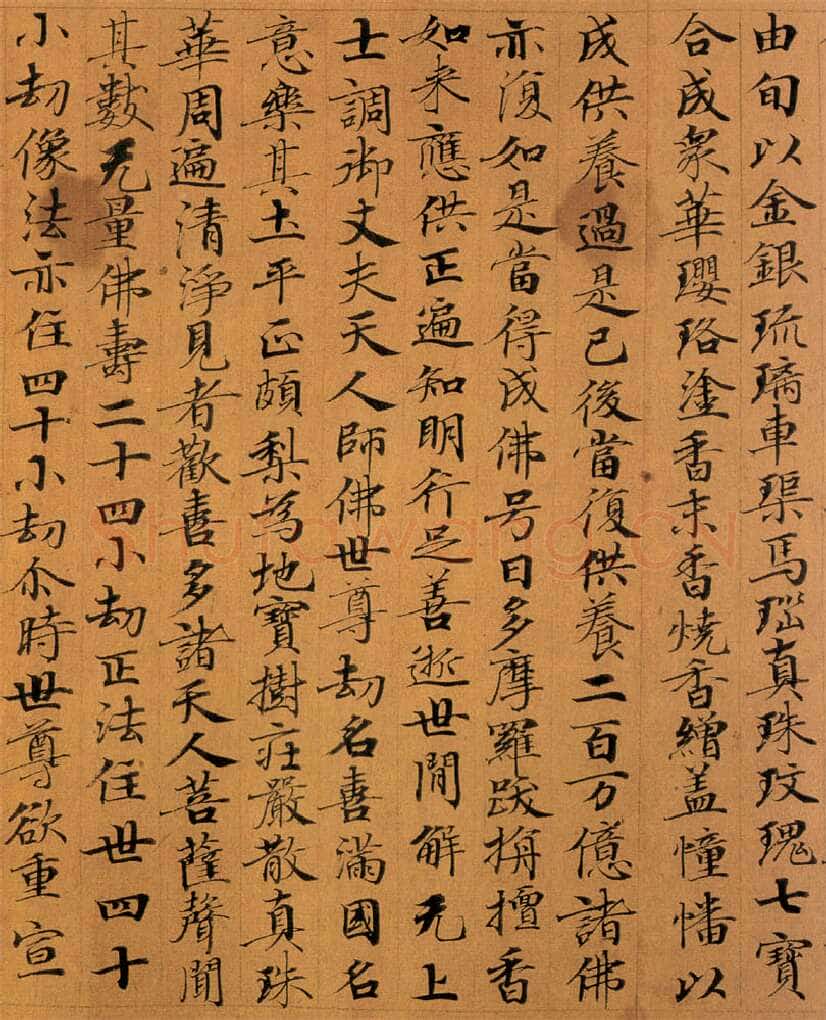 由旬以金銀琉璃車璖馬瑙真珠玫瑰七寶
合成衆華瓔珞塗香末香燒香繒盖幢幡以
成供養過是已後當復供養二百万億諸佛
亦復如是當得成佛号曰多摩羅跋栴檀香
如来應供正遍知明行足善逝世間解无上
士調御丈夫天人師佛世尊劫名喜滿國名
意樂其土平正頗梨為地寶樹莊嚴散真珠
華周遍清淨見者歡喜多諸天人菩薩聲聞
其數无量佛壽二十四小劫正法住世四十
小劫像法亦住四十小劫尒時世尊欲重宣